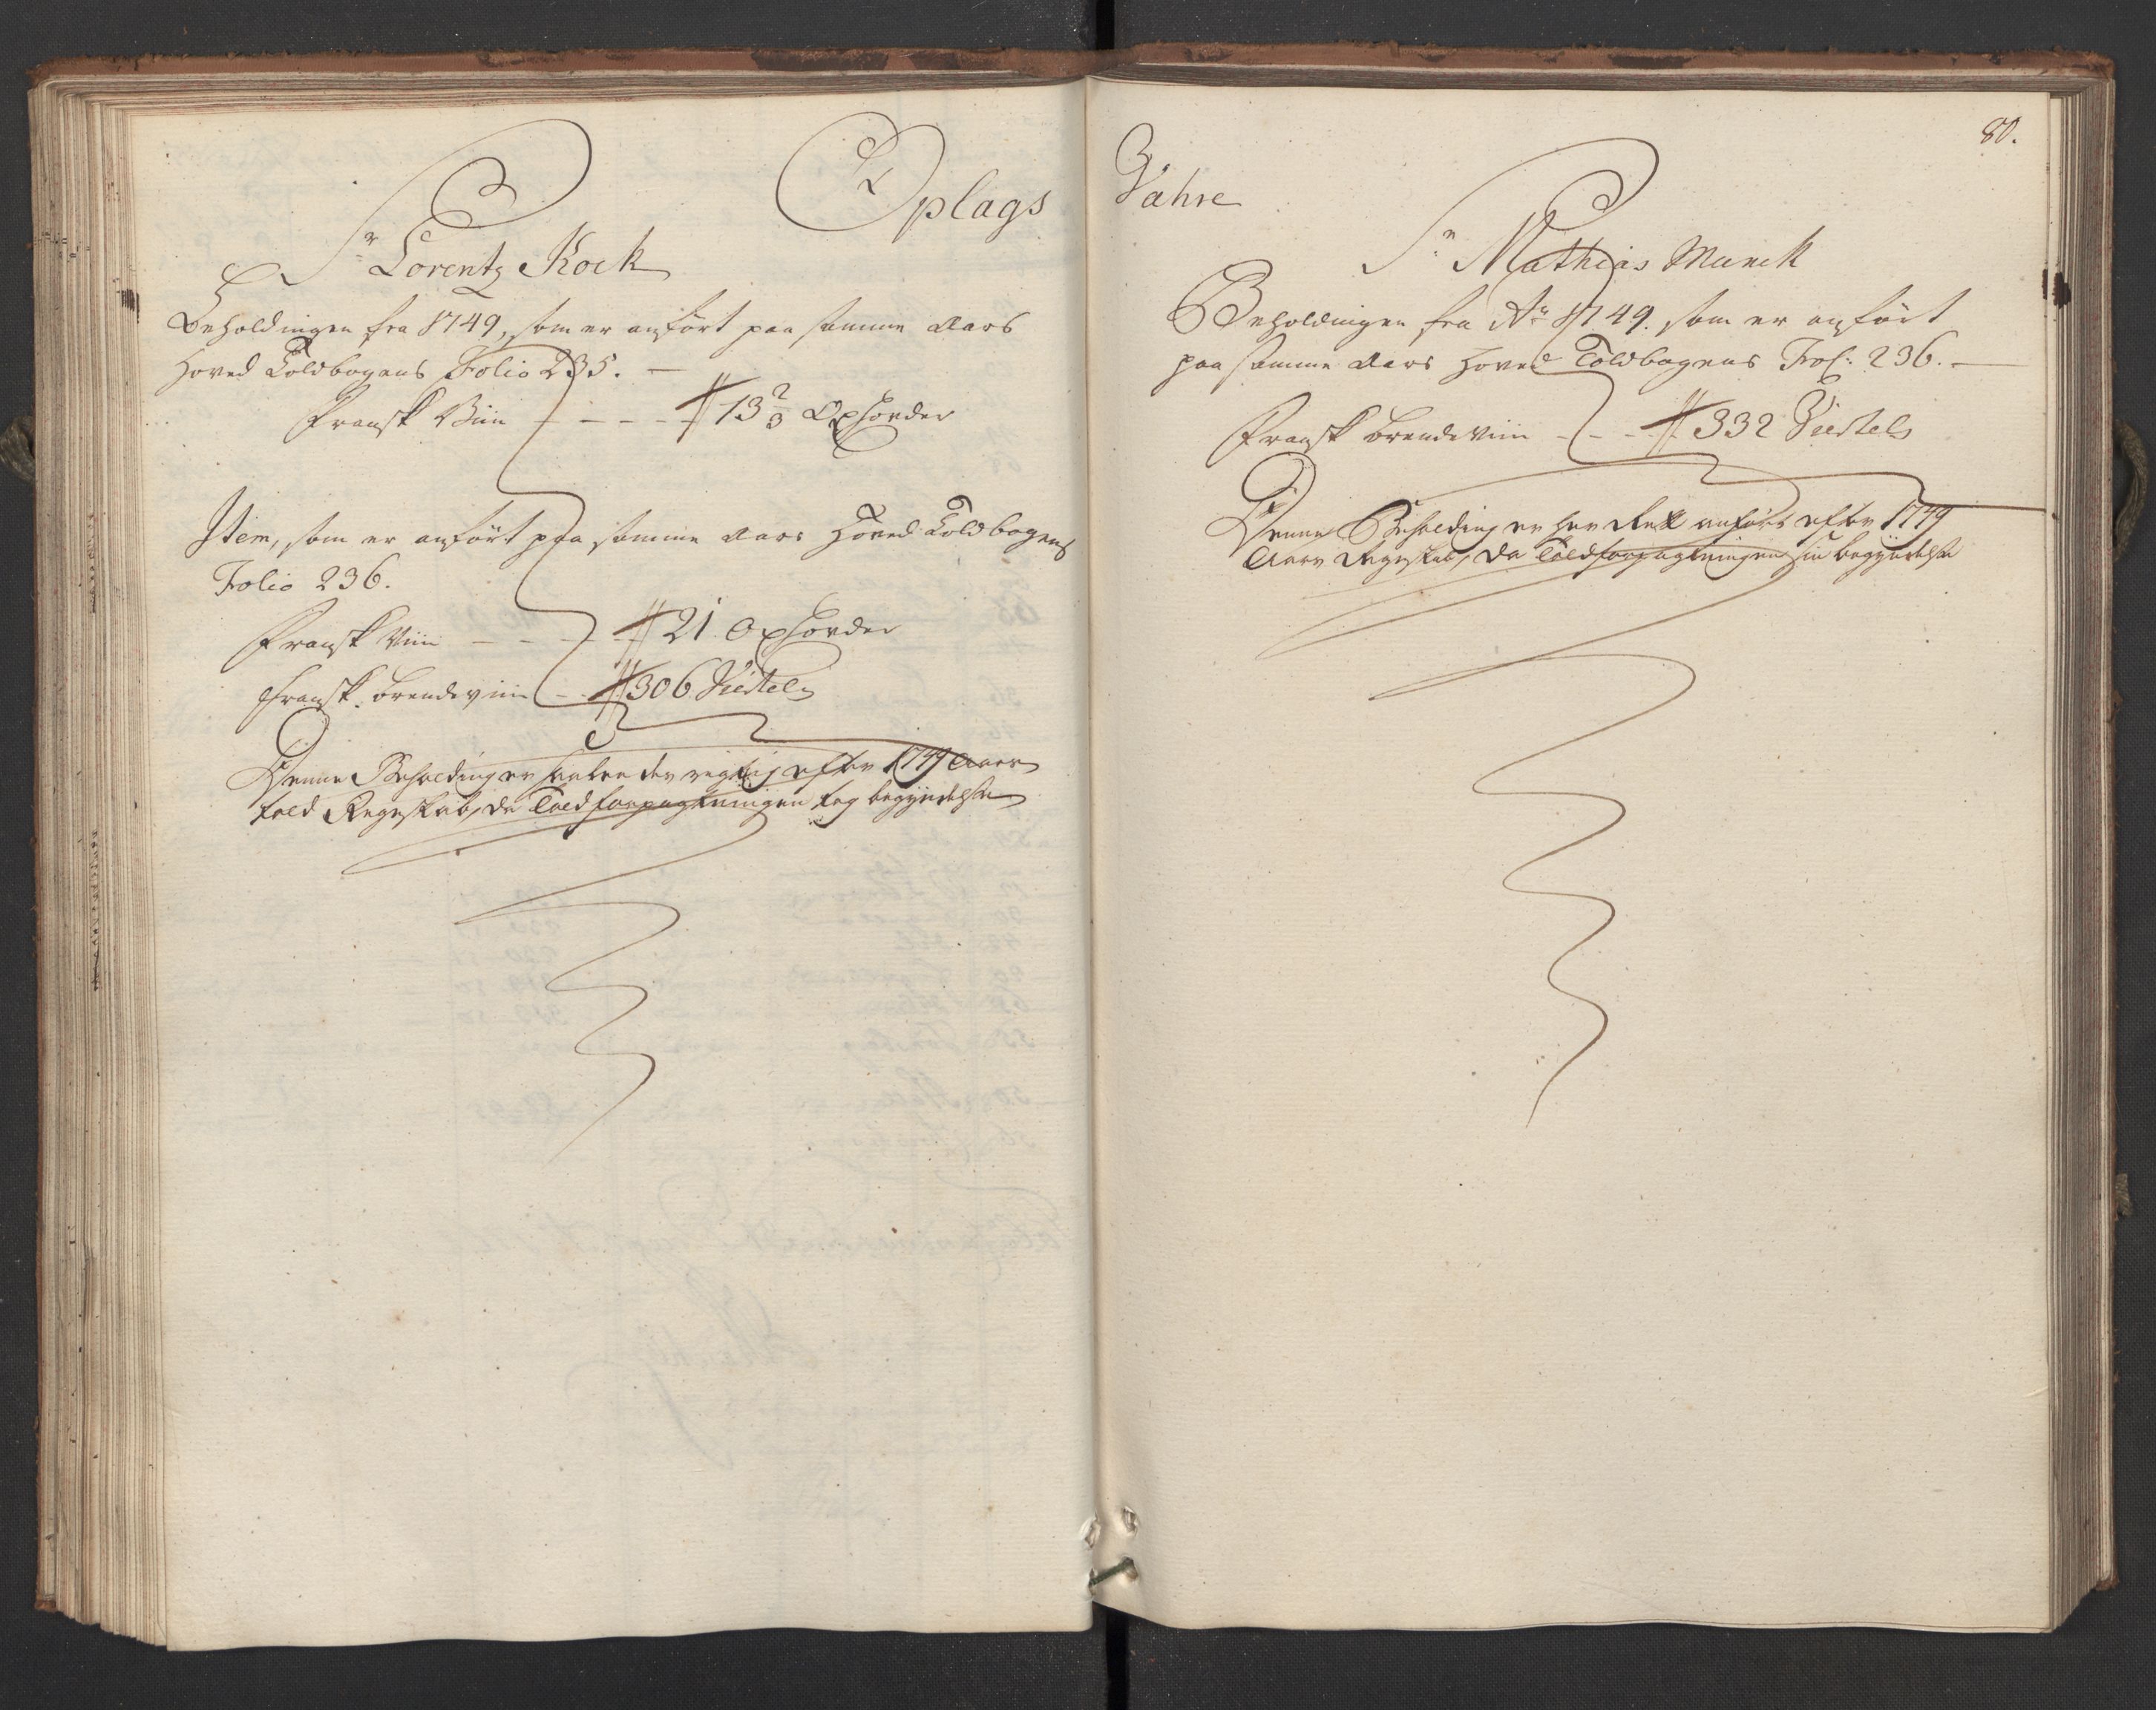 Oplags
Sr Lorentz Kock
Beholdingen fra 1749, som er anført paa samme Aars
Hoved Toldbogens Folio 235. —
Fransk Viin - - - - # 13 2/3 Oxhovder
Item, som er anført paa samme Aars Hoved Toldbogens
Folio 236.
Fransk Viin - - - - # 21. Oxhovder
Fransk brendeviin - - # 306 Viertel
Denne Beholding er efter 1749 Aars
told Regnskab, da Toldforpagtningen tog begyndelse
80.
Vahre
Sr Mathias Munck
Beholdingen fra Ao 1749. som er anført
paa samme Aars Hoved Toldbogens Fol: 236. —
Fransk brendeviin - - - # 332 Viertel
Denne Beholding er her Rett anført efter 1749
Aars Regnskab, da Toldforpagtningen sin begyndelse